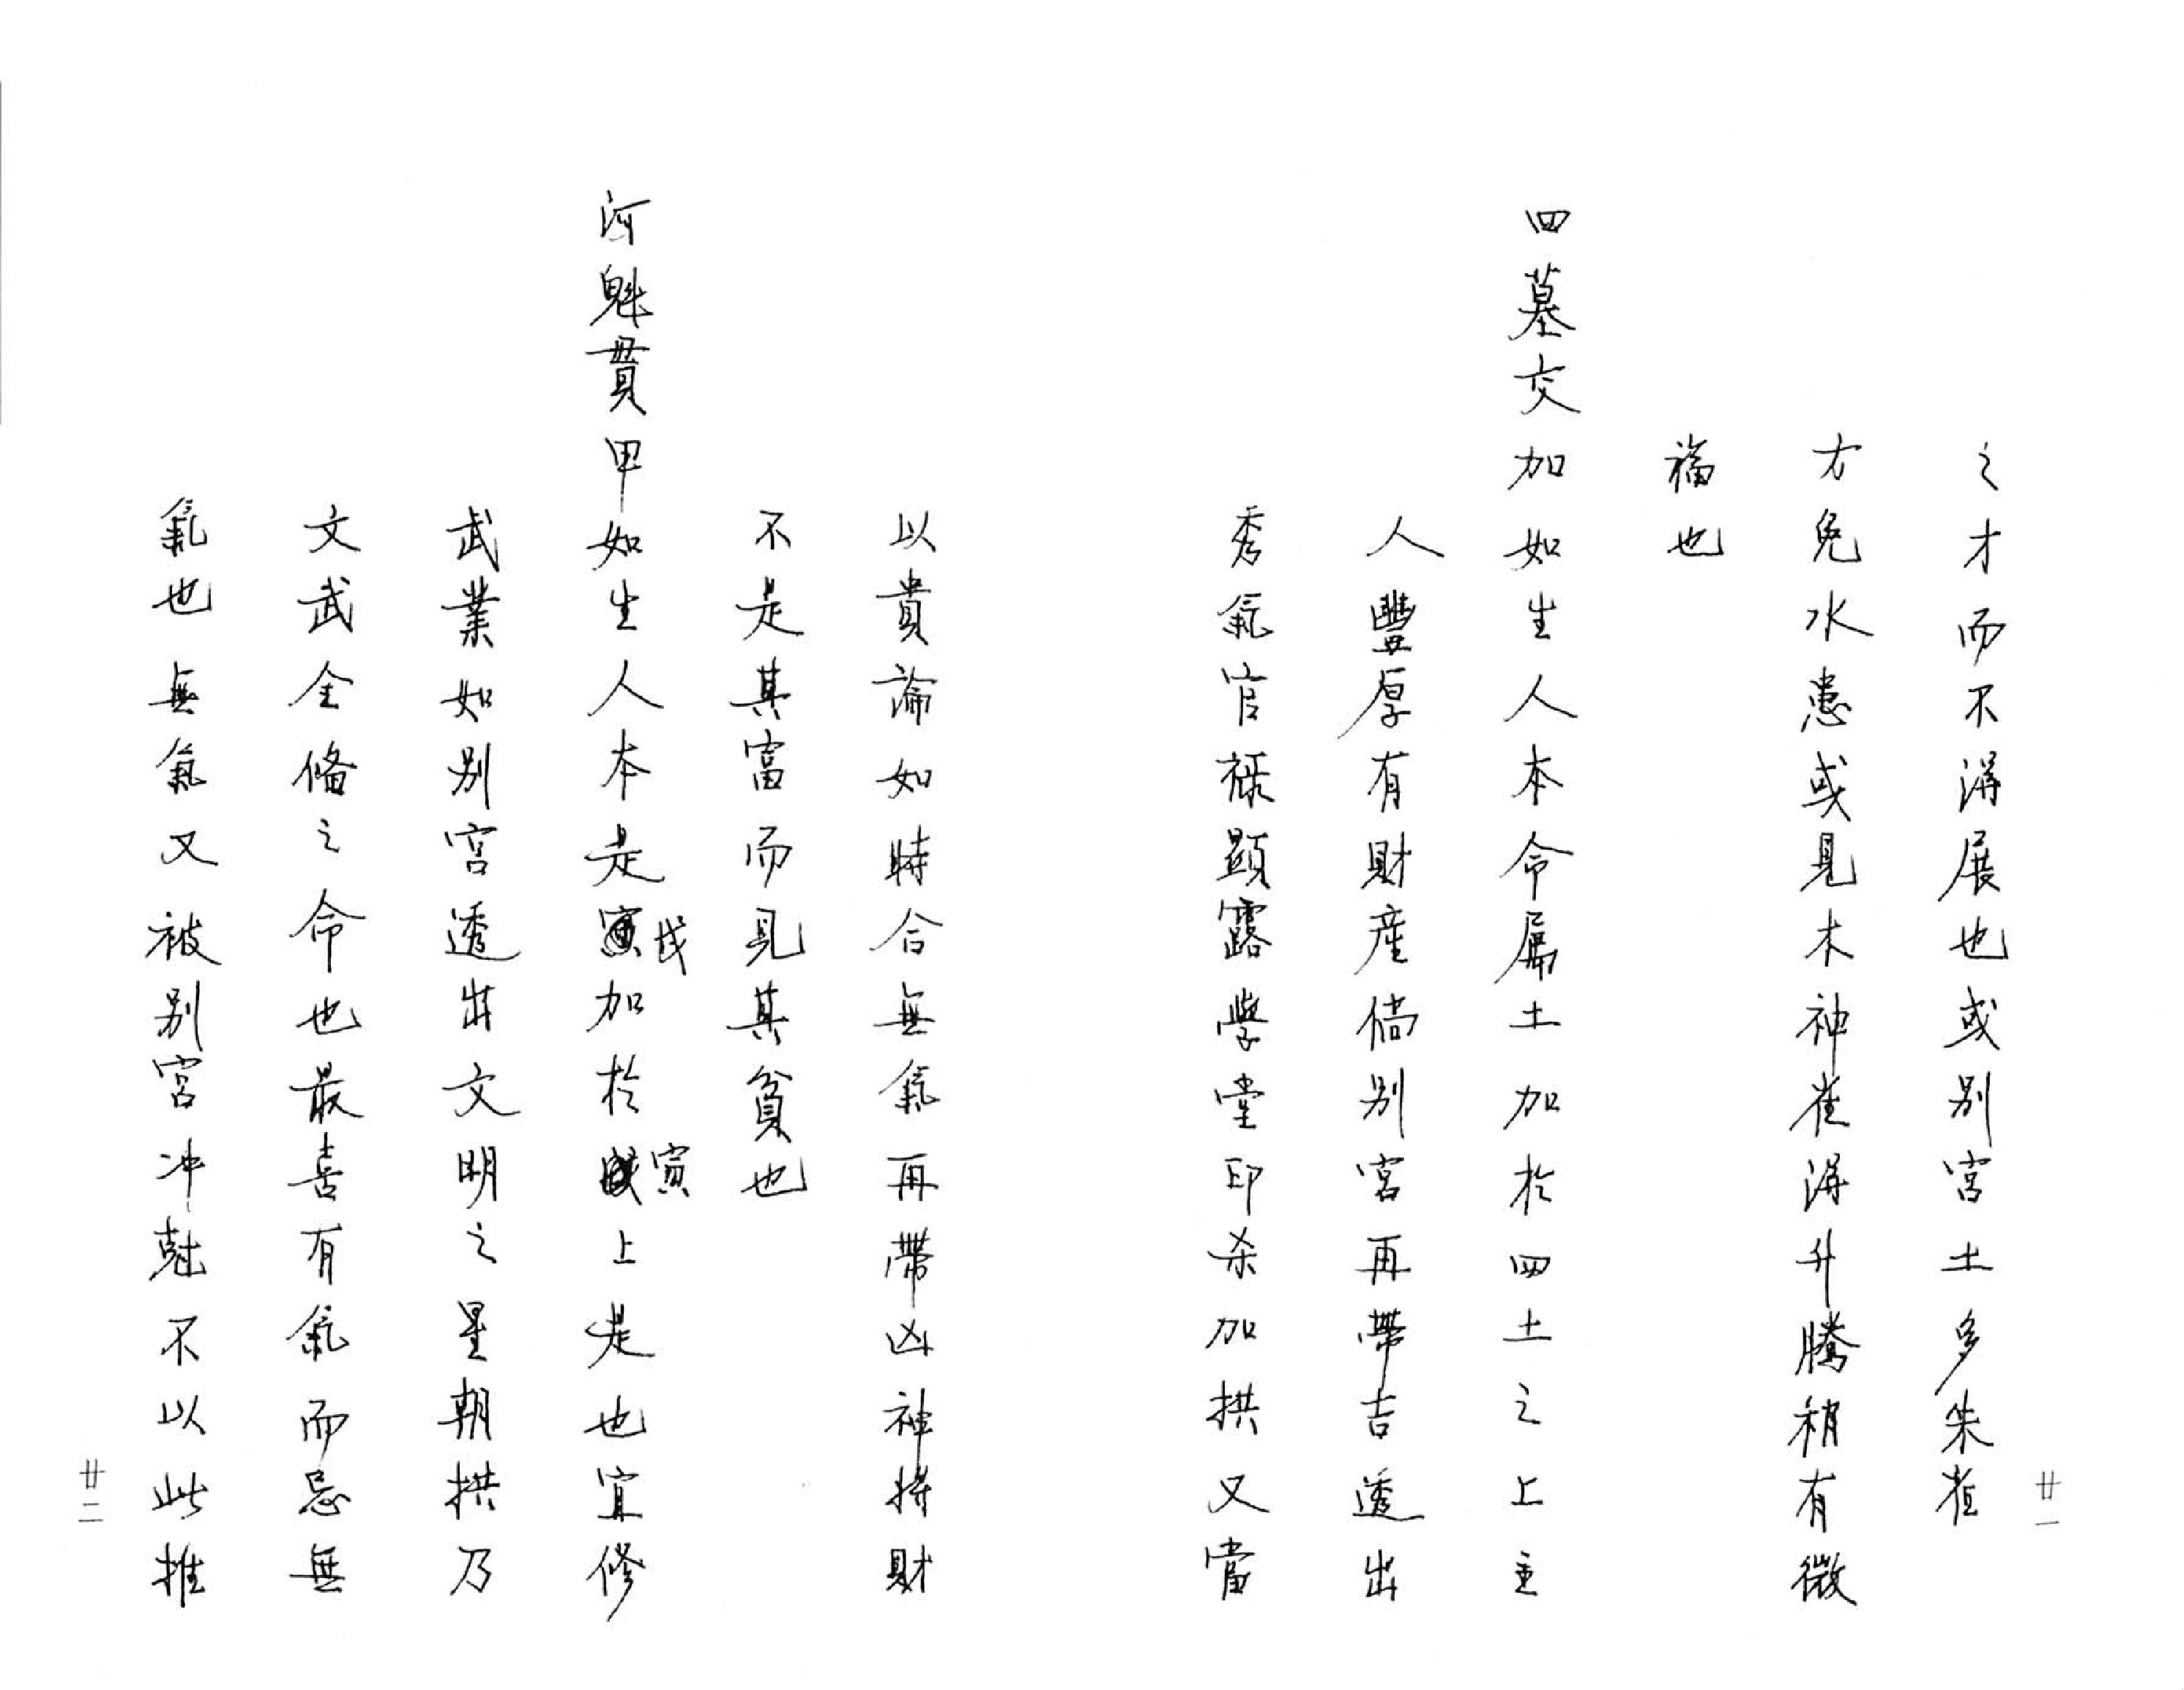 之才而不得展也或別宮土多朱雀
方免水患或見木神雀得升騰稍有微
福也
四墓交加如生人本命屬土加於四土之上主
人豐厚有財產倘別宮再帶吉透出
秀氣官祿顯露學堂印杀加拱又當
廿一
以貴論如時合無氣再帶凶神將財
不是其富而見其貧也
河魁貫甲如生人本是戌加於寅上是也宜修
武業如別宮透出文明之星朝拱乃
文武全脩之命也最喜有氣而忌無
氣也無氣又被別宮冲尅不以此推
廿二